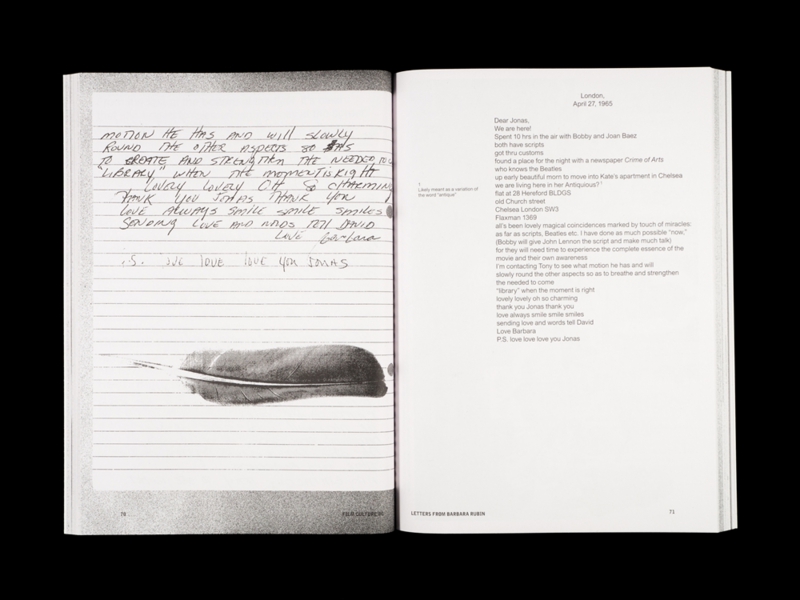 MOTION HE HAS AND WILL SLOWLY
ROUND THE OTHER ASPECTS SO AS
TO CREATE AND STRENGTHEN THE NEEDED
"LIBRARY" WHEN THE MOMENT IS RIGHT
LOVELY LOVELY OH SO CHARMING
THANK YOU JONAS THANK YOU
LOVE ALWAYS SMILE SMILE SMILES
SENDING LOVE AND WORDS TELL DAVID
LOVE Barbara
.S. LOVE LOVE LOVE YOU JONAS
70
FILM CULTURE 80
London,
April 27, 1965
Dear Jonas,
We are here!
Spent 10 hrs in the air with Bobby and Joan Baez
both have scripts
got thru customs
found a place for the night with a newspaper Crime of Arts
who knows the Beatles
up early beautiful morn to move into Kate's apartment in Chelsea
we are living here in her Antiquious? 1
flat at 28 Hereford BLDGS
old Church street
Chelsea London SW3
Flaxman 1369
all's been lovely magical coincidences marked by touch of miracles:
as far as scripts, Beatles etc. I have done as much possible "now,"
(Bobby will give John Lennon the script and make much talk)
for they will need time to experience the complete essence of the
movie and their own awareness
I'm contacting Tony to see what motion he has and will
slowly round the other aspects so as to breathe and strengthen
the needed to come
"library" when the moment is right
lovely lovely oh so charming
thank you Jonas thank you
love always smile smile smiles
sending love and words tell David
Love Barbara
P.S. love love love you Jonas
1
Likely meant as a variation of
the word "antique".
LETTERS FROM BARBARA RUBIN
71